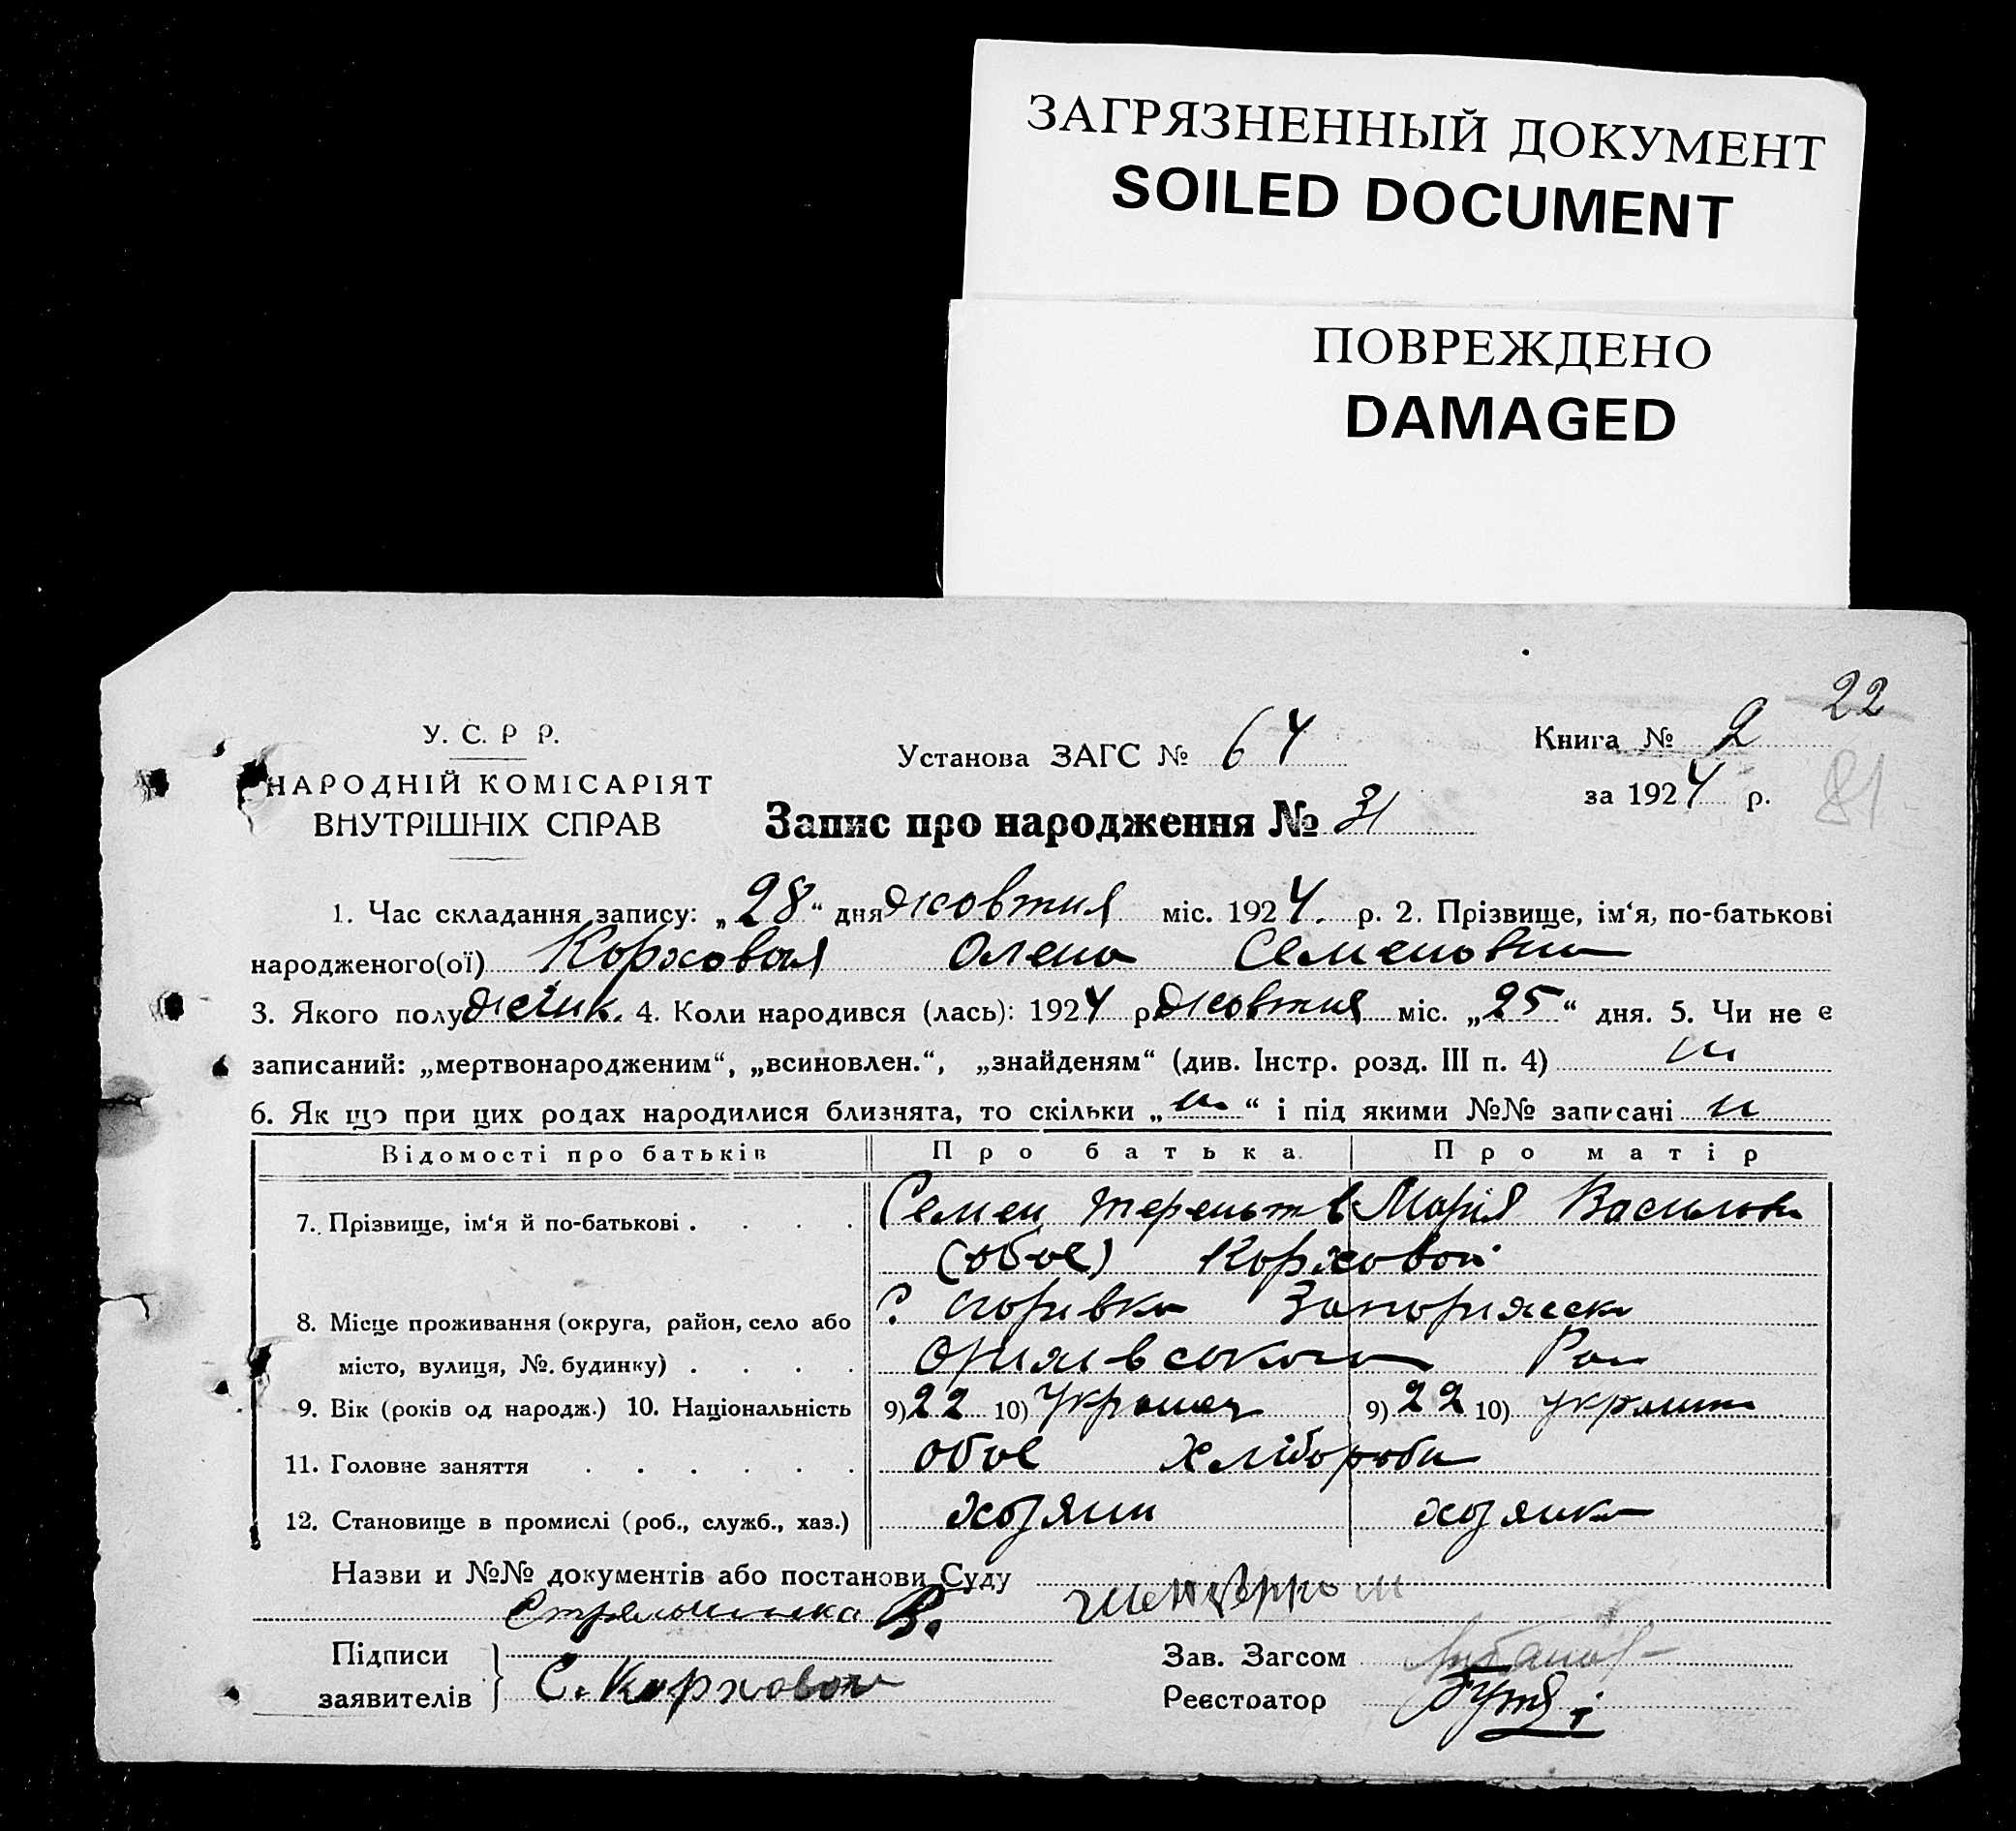 ЗАГРЯЗНЕННЫЙ ДОКУМЕНТ
SOILED DOCUMENT
ПОВРЕЖДЕНО
DAMAGED
22
У. С. Р Р.
НАРОДНІЙ КОМІСАРІЯТ
ВНУТРІШНІХ СПРАВ
Установа ЗАГС № 64
Книга № 2
за 1924 р.
81
Запис про народження № 31
1. Час складання запису: „28“ дня жовтня міс. 1924. р. 2. Прізвище, ім‘я, по-батькові
народженого(ої) Коржовая Олена Семеновна
3. Якого полу жінк. 4. Коли народився (лась): 1924 р. жовтня міс. „25“ дня. 5. Чи не є
записаний: „мертвонародженим“, „всиновлен.“, „знайденям“ (див. Інстр. розд. III п. 4)
6. Як що при цих родах народилися близнята, то скільки „ “ і під якими №№ записані
Відомості про батьків Про батька. Про матір
7. Прізвище, ім‘я й по-батькові . . . . Семен Терентьів Марія Васильовн
(обоє) Коржовой
8. Місце проживання (округа, район, село або С. Запоріжск
місто, вулиця, №. будинку) . . . . Оріхівського Рай
9. Вік (років од народж.) 10. Національність 9) 22 10) Українец 9) 22 10) українк
11. Головне заняття . . . . . . обоє хлібороби
12. Становище в промислі (роб., служб., хаз.) хозяин хозяйка
Назви и №№ документів або постанови Суду
В.
Підписи
заявителів } С. Коржовой
Зав. Загсом
Реєстратор